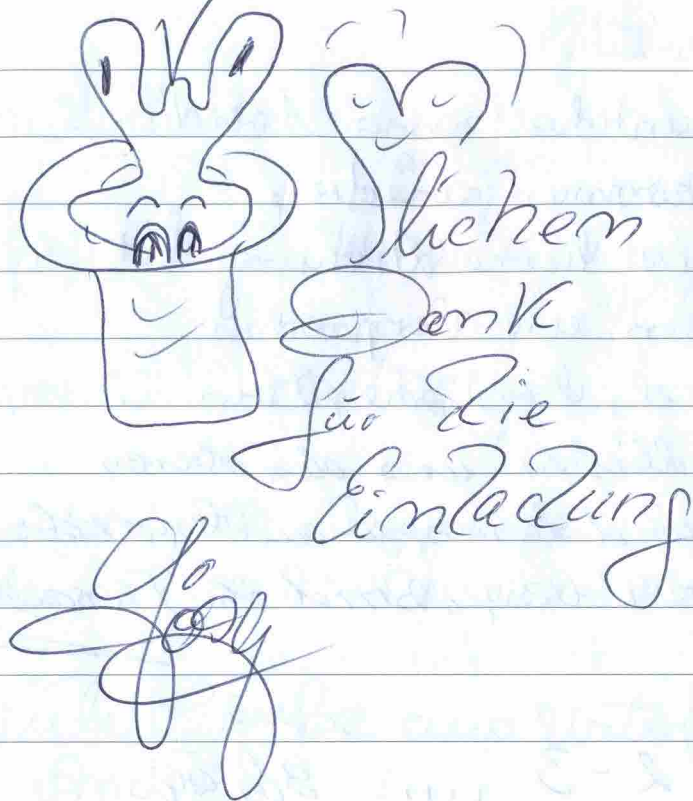 lichen
Dank
für die
Einladung